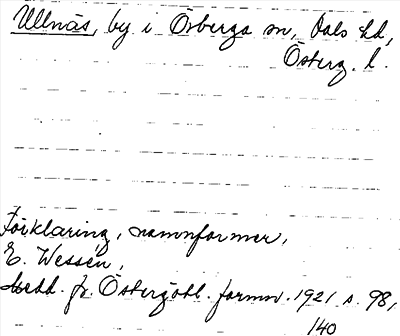 Ullnäs, by i Örberga sn, Dals hd,
Österg. l.
Förklaring, namnformer,
E. Wessén,
Medd. fr. Östergötl. fornm. 1921 s. 98,
140